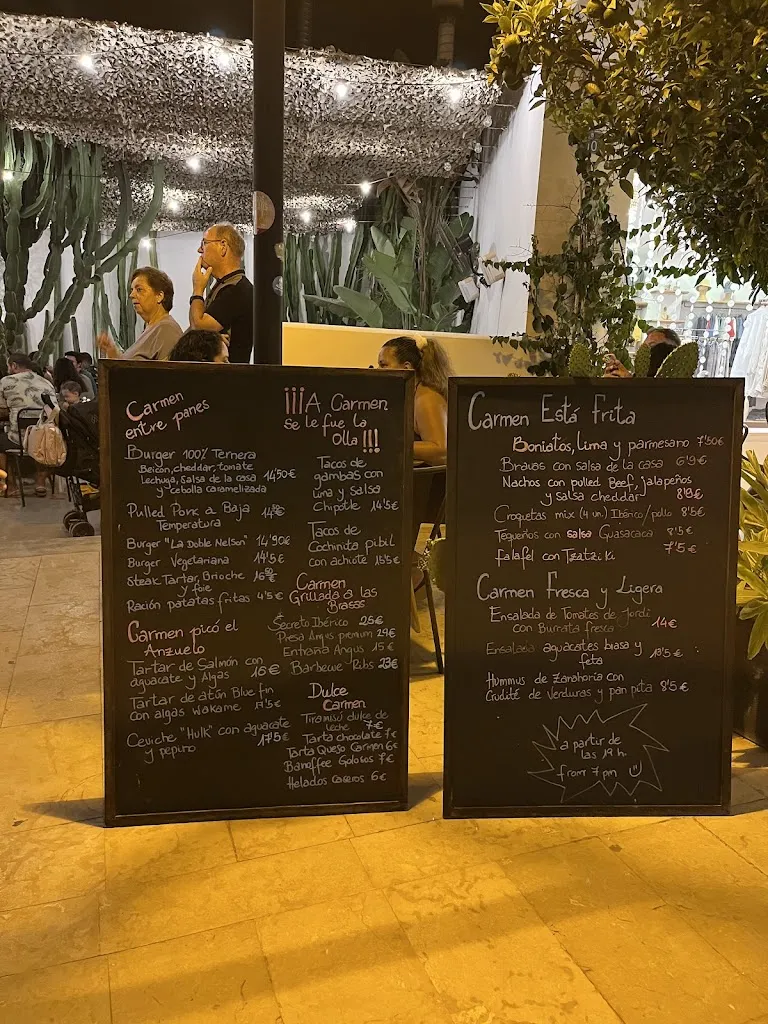 Carmen
entre panes
Burger 100% Ternera
Beicon, cheddar, tomate
Lechuga, salsa de la casa 14'50€
y cebolla caramelizada
Pulled Pork a Baja
Temperatura
Burger "La Doble Nelson" 14'90€
Burger Vegetariana 14'5€
Steak Tartar, Brioche
y foie
Ración patatas fritas 4'5€
Carmen picó el
Anzuelo
Tartar de Salmón con
aguacate y Algas 16€
Tartar de atún Blue fin
con algas wakame
Ceviche "Hulk" con aguacate
y pepino 17'5€
¡¡¡A Carmen
se le fue la
olla!!!
Tacos de
gambas con
lima y salsa
Chipotle 14'5€
Tacos de
Cochinita pibil
con achiote 15'5€
Carmen
Grillada a las
Brasas
Secreto Ibérico 25€
Presa Angus premium 29€
Entraña Angus 15€
Barbecue Ribs 23€
Dulce
Carmen
Tiramisú dulce de
leche 7€
Tarta chocolate 7€
Tarta Queso Carmen 6€
Banoffee Golosos 7€
Helados Caseros 6€
Carmen Está Frita
Boniatos, lima y parmesano 7'50€
Bravas con salsa de la casa 6'9€
Nachos con pulled Beef, jalapeños
y salsa cheddar
Croquetas mix (4 un) Ibérico/pollo 8'5€
Tequeños con salsa Guasacaca 8'5€
falafel con Tzatziki 7'5€
Carmen Fresca y Ligera
Ensalada de Tomates de Jordi
con Burrata fresca 14€
Ensalada aguacates brasa y
feta 13'5€
Hummus de Zanahoria con
Crudité de verduras y pan pita 8'5€
a partir de
las 19 h.
from 7 pm